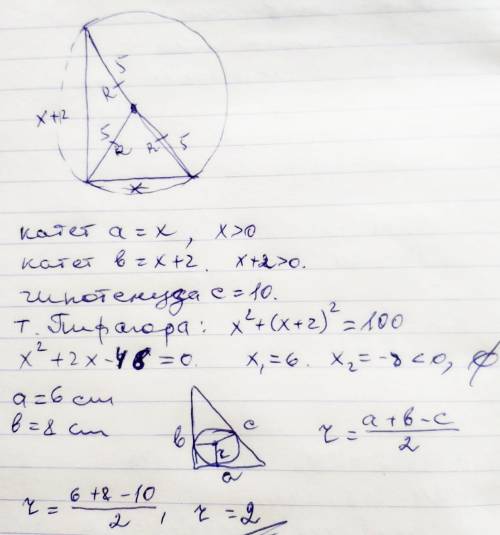 5
R
x+2
5
R
R
5
x
катет a = x, x>0
катет b = x+2. x+2>0.
гипотенуза c = 10.
т. Пифагора: x² + (x+2)² = 100
x² + 2x - 48 = 0. x₁ = 6. x₂ = -8 < 0, ∅
a = 6 cm
b = 8 cm
b
c
r
a
r = (a+b-c)/2
r = (6+8-10)/2, r = 2